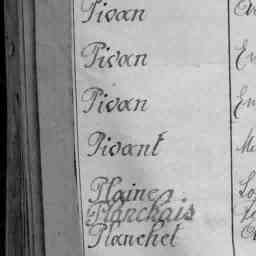 Pivan
Pivan
Pivan
Pivant
Plaine
Planchais
Planchet